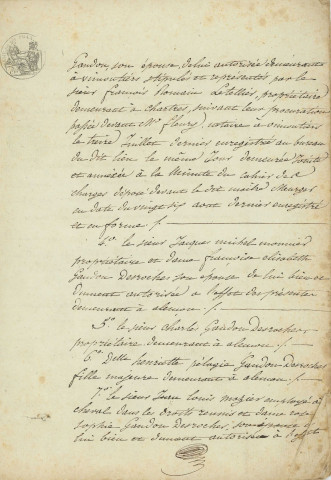 Gaudon, son épouse, de lui autorisée demeurants
à vimoutiers stipulés et représentés par le
sieur francois Romain Letellier, propriétaire
demeurant à Chartres, suivant leur procuration
passée devant Me fleury, notaire à vimoutiers
le treize Juillet dernier enregistré au bureau
du dit lieu le même Jour demeurée Jointe
et annexée à la Minute du cahier de
charges déposé devant le dit maitre
en date du vingt six aout dernier enregistré
et en forme /.
4o. le sieur Jacques michel monnier
propriétaire et dame francoise elisabeth
Gaudon Desroches son épouse de lui bien et
dument autorisée à l'effet des présentes
demeurant à alencon /.
5o le sieur Charles Gaudon Desroches
propriétaire demeurant à alencon /.
6o Delle henriette pélagie Gaudon Desroches
fille majeure demeurant à alencon /.
7o le sieur Jean Louis mozier employé à
cheval dans le droits reunis et dame
sophie Gaudon Desroches, son épouse de
lui bien et dument autorisée à l'effet